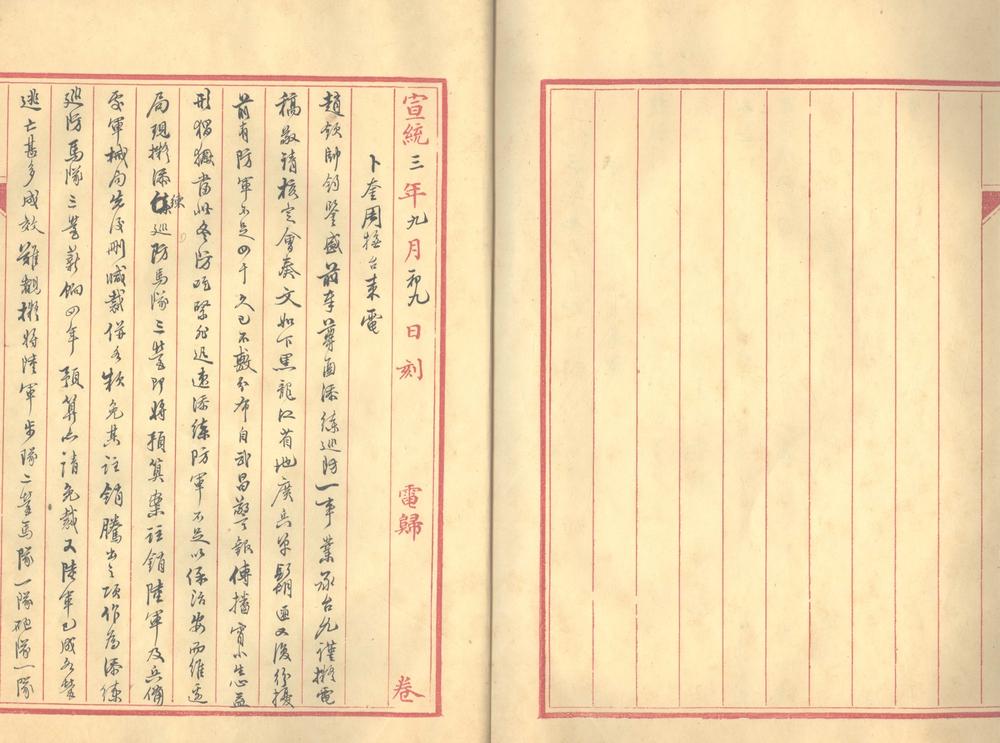 宣統三年九月初九日刻 電歸 卷
卜奎周撫台來電
趙欽帥鈞鑒盛前奉尊函添練巡防一事業承台允謹擬電
稿敬請核定會奏文如下黑龍江省地廣兵單鬍匪又復紛擾
前有防軍不足四千人已不敷分布自武昌警報傳播宵小志益
形猖獗當此冬防吃緊非迅速添練防軍不足以保治安而維邊
局現擬添練巡防馬隊三營即將預算案註銷陸軍及兵備
處軍械局先後刪減裁併各款免其註銷騰出之項作為添練
巡防馬隊三營薪餉四年預算亦請免裁又陸軍已成各營
逃亡甚多成效難覩擬將陸軍步隊二營馬隊一隊砲隊一隊